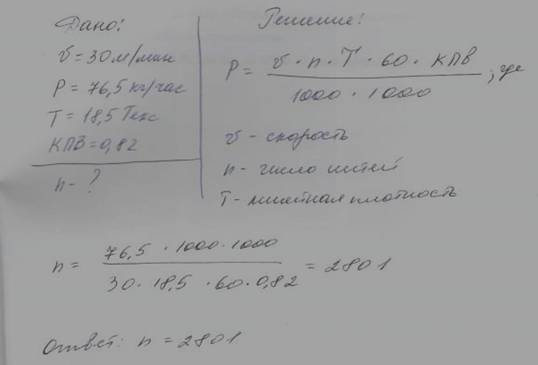 Дано:
v = 30 м/мин
P = 76,5 кг/час
T = 18,5 Текс
КПВ = 0,82
n - ?
Решение:
P = v · n · T · 60 · КПВ / 1000 · 1000 , где
v - скорость
n - число нитей
T - линейная плотность
n = 76,5 · 1000 · 1000 / 30 · 18,5 · 60 · 0,82 = 2801
Ответ: n = 2801